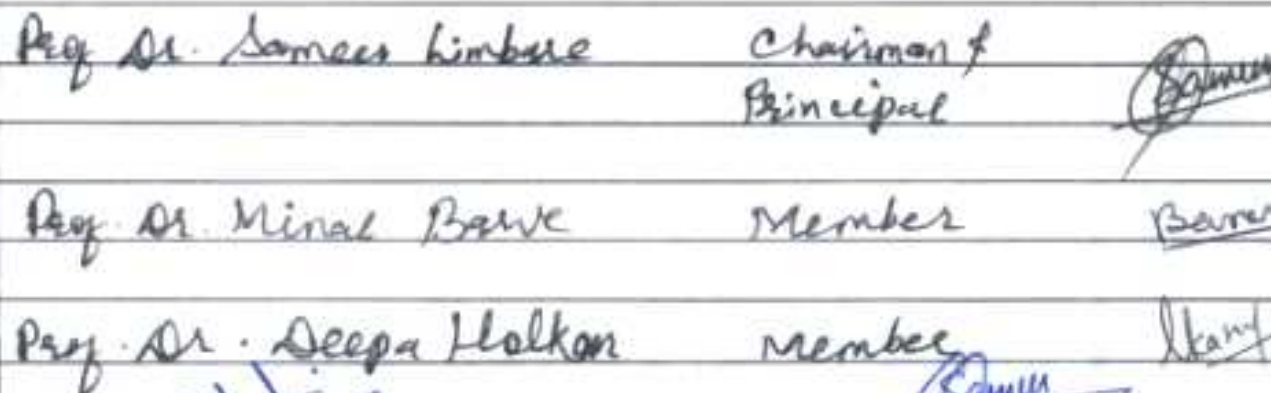 Prof Dr. Sameer Limbare Chairman &
Principal
Prof. Dr. Minal Barve Member
Prof. Dr. Deepa Holkar Member